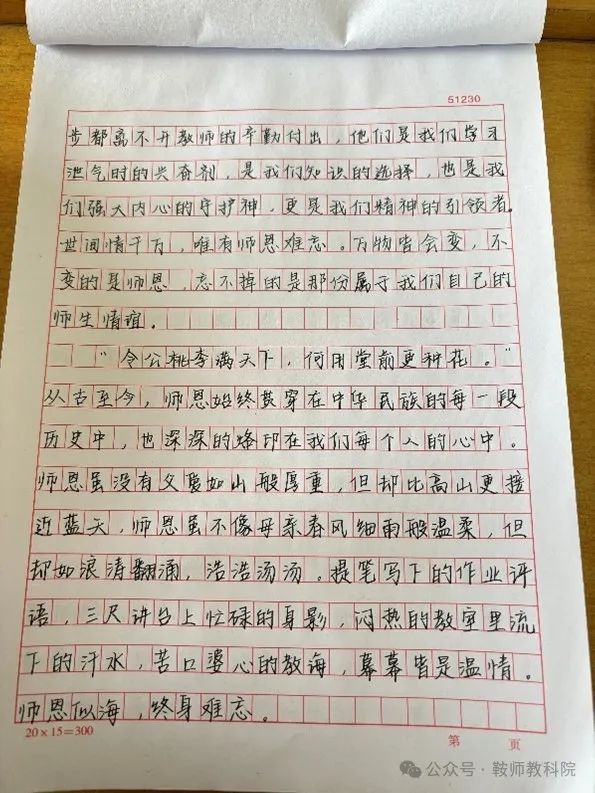 51230
步都离不开教师的辛勤付出，他们是我们学习
泄气时的兴奋剂，是我们知识的选择，也是我
们强大内心的守护神，更是我们精神的引领者。
世间情千万，唯有师恩难忘。万物皆会变，不
变的是师恩，忘不掉的是那份属于我们自己的
师生情谊。
“令公桃李满天下，何用堂前更种花。”
从古至今，师恩始终贯穿在中华民族的每一段
历史中，也深深的烙印在我们每个人的心中。
师恩虽没有父爱如山般厚重，但却比高山更接
近蓝天，师恩虽不像母亲春风细雨般温柔，但
却如浪涛翻涌，浩浩汤汤。提笔写下的作业评
语，三尺讲台上忙碌的身影，闷热的教室里流
下的汗水，苦口婆心的教诲，幕幕皆是温情。
师恩似海，终身难忘。
20×15=300
第 页
公众号·鞍师教科院